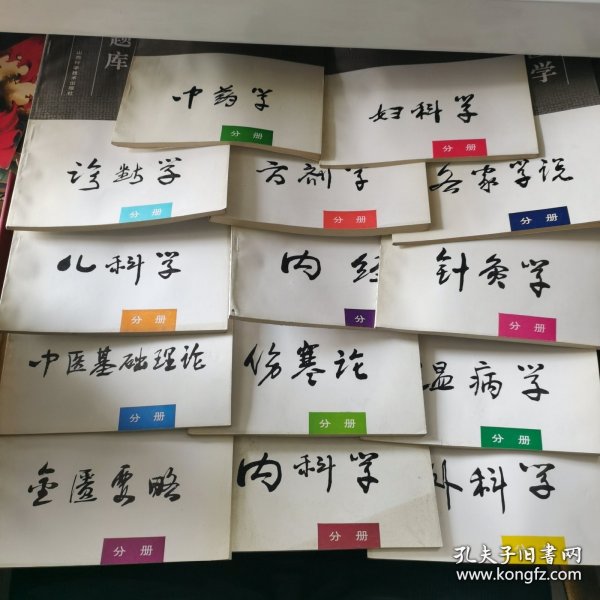 题库
山东科学技术出版社
学
中药学
分册
妇科学
分册
诊断学
分册
方剂学
分册
各家学说
分册
儿科学
分册
内经
分
针灸学
分册
中医基础理论
分册
伤寒论
分册
温病学
分册
金匮要略
分册
内科学
分册
外科学
孔夫子旧书网
www.kongfz.com